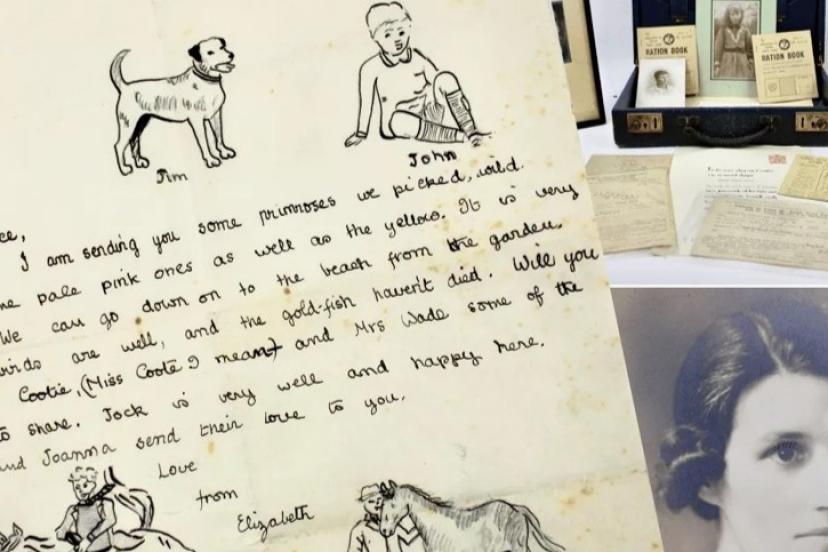 Jim
John
ce,
I am sending you some primroses we picked, wild
me pale pink ones as well as the yellow. It is very
We can go down on to the beach from the garden.
birds are well, and the gold-fish haven't died. Will you
Cootie, (Miss Coote I mean) and Mrs Wade some of the
to share. Jock is very well and happy here.
and Joanna send their love to you.
Love
from
Elizabeth
RATION BOOK
RATION BOOK